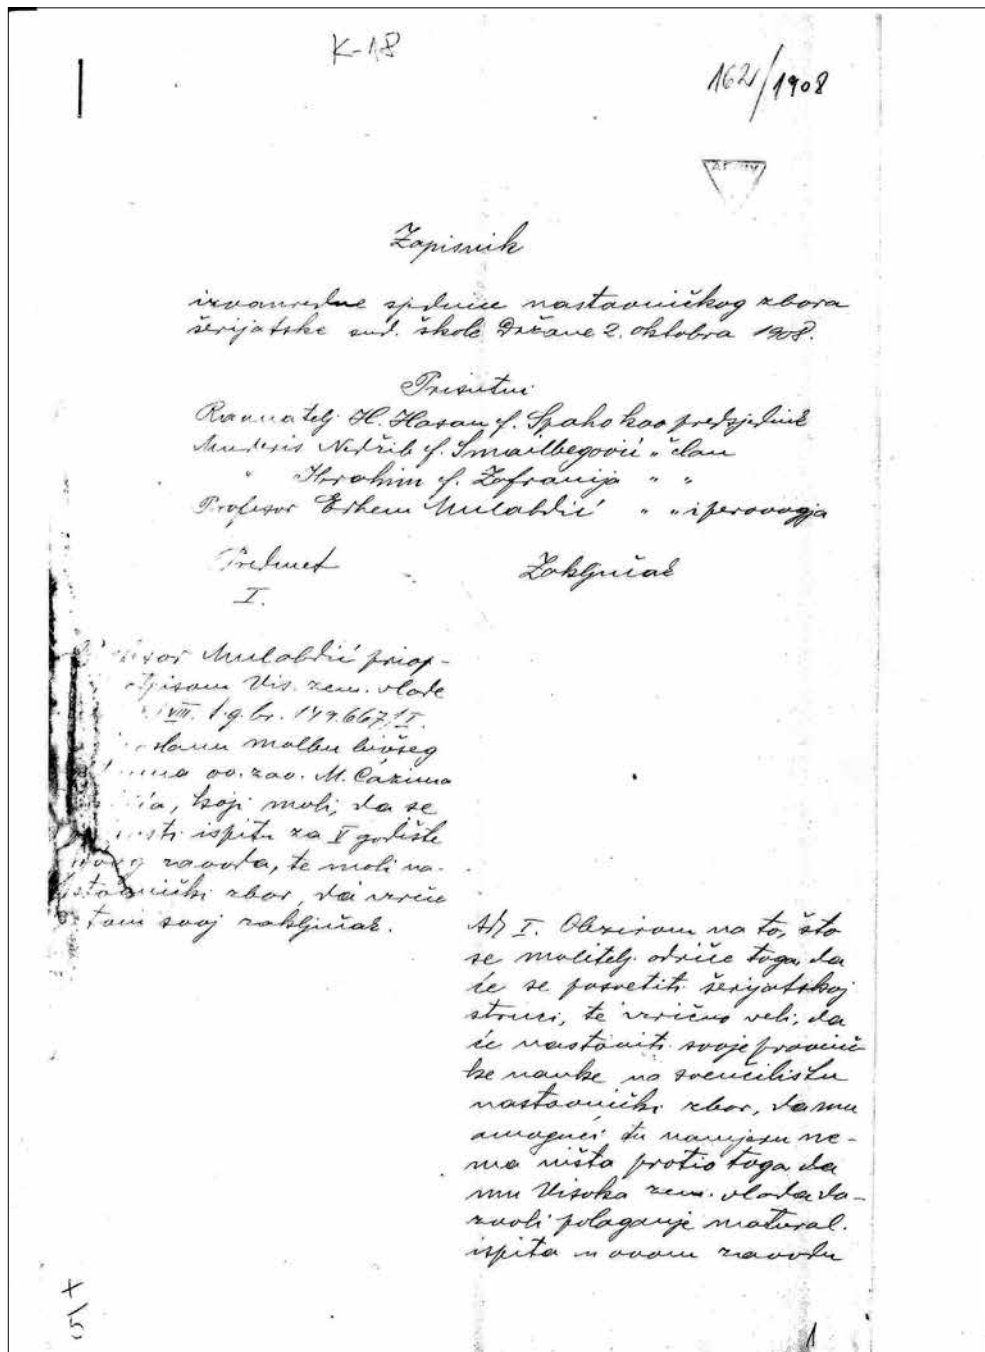 K-18
162/1908
Zapisnik
izvanredne sjednice nastavničkog zbora
šerijatske sud. škole držane 2. oktobra 1908.
Prisutni
Ravnatelj H. Hasan ef. Spaho kao predsjednik
Muderis Nedžib ef. Smailbegović " član
" Ibrahim ef. Zafranija " "
Profesor Edhem Mulabdić " " i perovogja
Predmet
Zaključak
I.
Mulabdić priop-
Vis. zem. vlade
VIII. t.g. br. 149.667/I.
molbu bivšeg
ov. zav. M. Ćazima
koji moli, da se
ispitu za V godište
zavoda, te moli na-
stavnički zbor, da izreče
o tom svoj zaključak.
Ad I. Obzirom na to, što
se molitelj odriče toga, da
će se posvetiti šerijatskoj
struci, te izrično veli, da
će nastaviti svoje pravnič
ke nauke na sveučilištu
nastavnički zbor, da mu
omogući tu namjeru ne-
ma ništa protiv toga da
mu Visoka zem. vlada do-
zvoli polaganje matural.
ispita u ovom zavodu
1